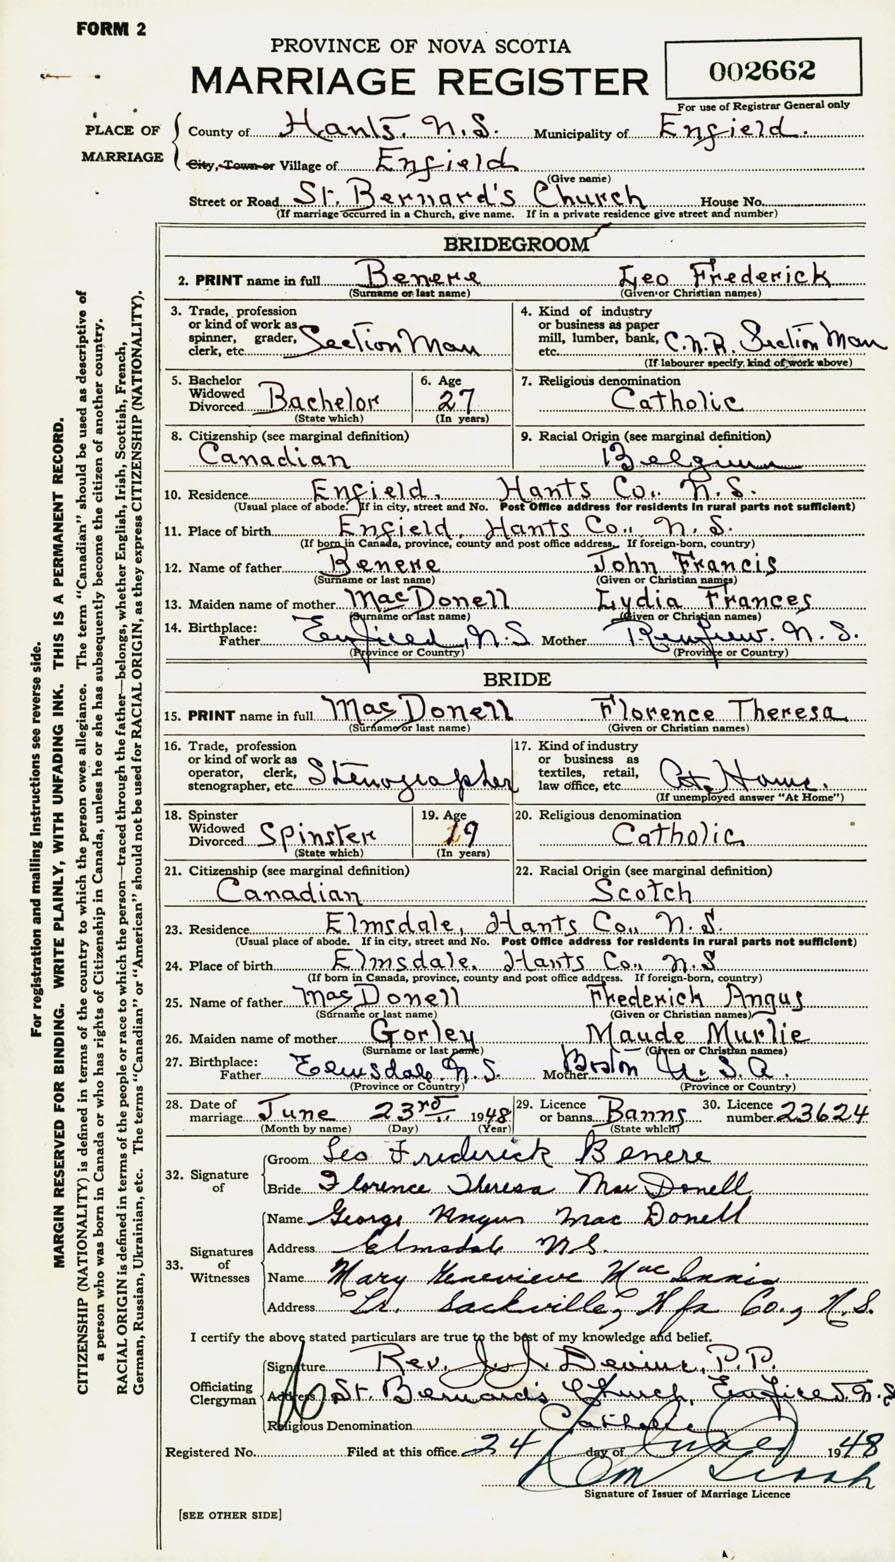 FORM 2
PROVINCE OF NOVA SCOTIA
MARRIAGE REGISTER
002662
For use of Registrar General only
PLACE OF MARRIAGE
County of Hants. N.S. Municipality of Enfield.
City, Town or Village of Enfield
(Give name)
Street or Road St. Bernard's Church House No.
(If marriage occurred in a Church, give name. If in a private residence give street and number)
BRIDEGROOM
2. PRINT name in full Benere Leo Frederick
(Surname or last name) (Given or Christian names)
3. Trade, profession or kind of work as spinner, grader, clerk, etc. Section Man
4. Kind of industry or business as paper mill, lumber, bank, etc. C.N.R. Section Man
(If labourer specify kind of work above)
5. Bachelor Widowed Divorced Bachelor
(State which)
6. Age 27
(In years)
7. Religious denomination
Catholic
8. Citizenship (see marginal definition)
Canadian
9. Racial Origin (see marginal definition)
Belgium
10. Residence Enfield, Hants Co., N.S.
(Usual place of abode. If in city, street and No. Post Office address for residents in rural parts not sufficient)
11. Place of birth Enfield, Hants Co., N.S.
(If born in Canada, province, county and post office address. If foreign-born, country)
12. Name of father Benere John Francis
(Surname or last name) (Given or Christian names)
13. Maiden name of mother MacDonell Lydia Frances
(Surname or last name) (Given or Christian names)
14. Birthplace: Father Enfield, N.S. Mother Renfrew. N.S.
(Province or Country) (Province or Country)
BRIDE
15. PRINT name in full MacDonell Florence Theresa
(Surname or last name) (Given or Christian names)
16. Trade, profession or kind of work as operator, clerk, stenographer, etc. Stenographer
17. Kind of industry or business as textiles, retail, law office, etc. At Home.
(If unemployed answer "At Home")
18. Spinster Widowed Divorced Spinster
(State which)
19. Age 19
(In years)
20. Religious denomination
Catholic
21. Citizenship (see marginal definition)
Canadian
22. Racial Origin (see marginal definition)
Scotch
23. Residence Elmsdale, Hants Co., N.S.
(Usual place of abode. If in city, street and No. Post Office address for residents in rural parts not sufficient)
24. Place of birth Elmsdale, Hants Co., N.S
(If born in Canada, province, county and post office address. If foreign-born, country)
25. Name of father MacDonell Frederick Angus
(Surname or last name) (Given or Christian names)
26. Maiden name of mother Gorley Maude Murlie
(Surname or last name) (Given or Christian names)
27. Birthplace: Father Elmsdale, N.S. Mother Boston U.S.A.
(Province or Country) (Province or Country)
28. Date of marriage June 23rd 1948
(Month by name) (Day) (Year)
29. Licence or banns Banns
(State which)
30. Licence number 23624
32. Signature of
Groom Leo Frederick Benere
Bride Florence Theresa MacDonell
33. Signatures of Witnesses
Name George Angus MacDonell
Address Elmsdale N.S.
Name Mary Genevieve MacInnis
Address Lr. Sackville, Hfx Co., N.S.
I certify the above stated particulars are true to the best of my knowledge and belief.
Officiating Clergyman
Signature Rev. J. J. Devine, P.P.
Address St. Bernard's Church, Enfield, N.S
Religious Denomination Catholic
Registered No. Filed at this office 24 day of June 1948
Signature of Issuer of Marriage Licence
[SEE OTHER SIDE]
For registration and mailing instructions see reverse side.
MARGIN RESERVED FOR BINDING. WRITE PLAINLY, WITH UNFADING INK. THIS IS A PERMANENT RECORD.
CITIZENSHIP (NATIONALITY) is defined in terms of the country to which the person owes allegiance. The term "Canadian" should be used as descriptive of
a person who was born in Canada or who has rights of Citizenship in Canada, unless he or she has subsequently become the citizen of another country.
RACIAL ORIGIN is defined in terms of the people or race to which the person—traced through the father—belongs, whether English, Irish, Scottish, French,
German, Russian, Ukrainian, etc. The terms "Canadian" or "American" should not be used for RACIAL ORIGIN, as they express CITIZENSHIP (NATIONALITY).